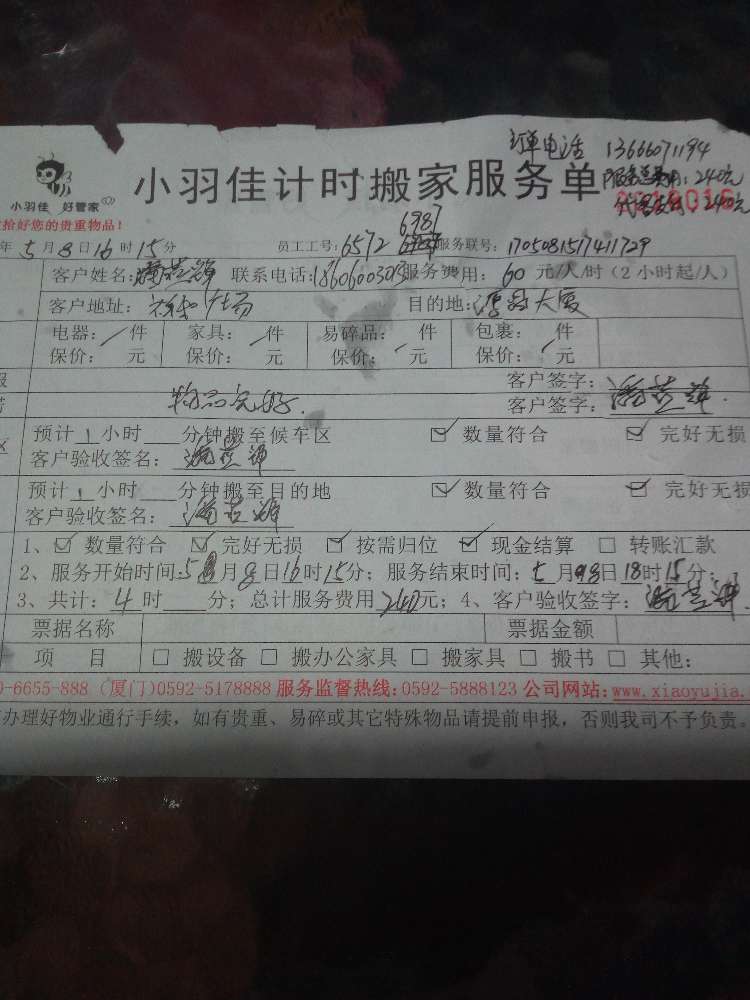 订单电话 13666071194
小羽佳 好管家
小羽佳计时搬家服务单
服务总费用:240元
代理支付:240元
拾好您的贵重物品!
年5月8日16时15分 员工工号:6572 6987 服务联号:1705081517411729
客户姓名: 联系电话:18606003013 服务费用:60元/人/时(2小时起/人)
客户地址: 广场 目的地: 大厦
电器: 件 家具: 件 易碎品: 件 包裹: 件
保价: 元 保价: 元 保价: 元 保价: 元
客户签字:
物品完好. 客户签字:
预计1小时 分钟搬至候车区 ☑数量符合 ☑完好无损
客户验收签名:
预计1小时 分钟搬至目的地 ☑数量符合 ☑完好无损
客户验收签名:
1、☑数量符合 ☑完好无损 □按需归位 ☑现金结算 □转账汇款
2、服务开始时间:5月8日16时15分;服务结束时间:5月8日18时15分;
3、共计:4时 分;总计服务费用240元;4、客户验收签字:
票据名称 票据金额
项 目 □搬设备 □搬办公家具 □搬家具 □搬书 □其他:
0-6655-888(厦门)0592-5178888 服务监督热线:0592-5888123 公司网站:www.xiaoyujia.
办理好物业通行手续,如有贵重、易碎或其它特殊物品请提前申报,否则我司不予负责。